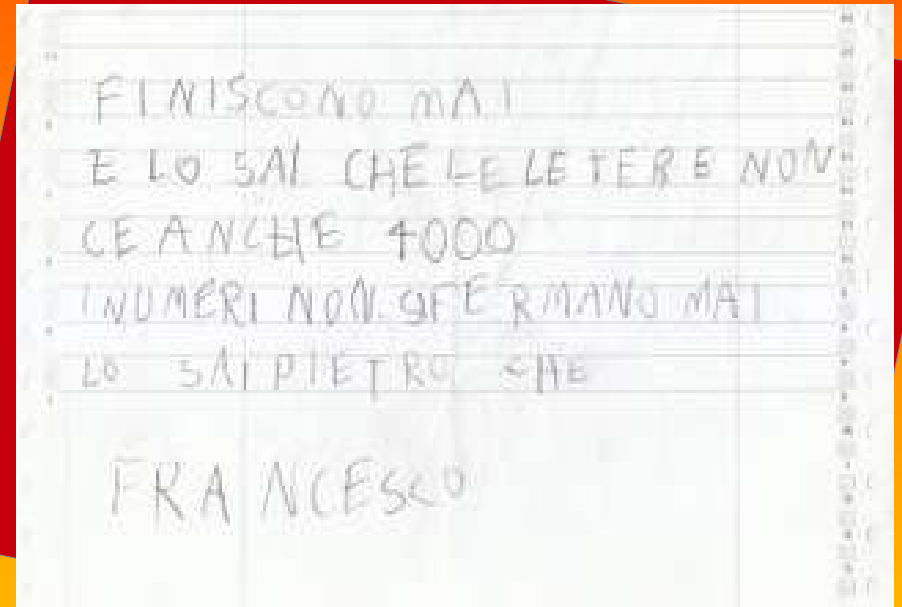 FINISCONO MAI
E LO SAI CHE LE LETERE NON
CE ANCHE 4000
I NUMERI NON MAI
LO SAI PIETRO CHE
FRANCESCO